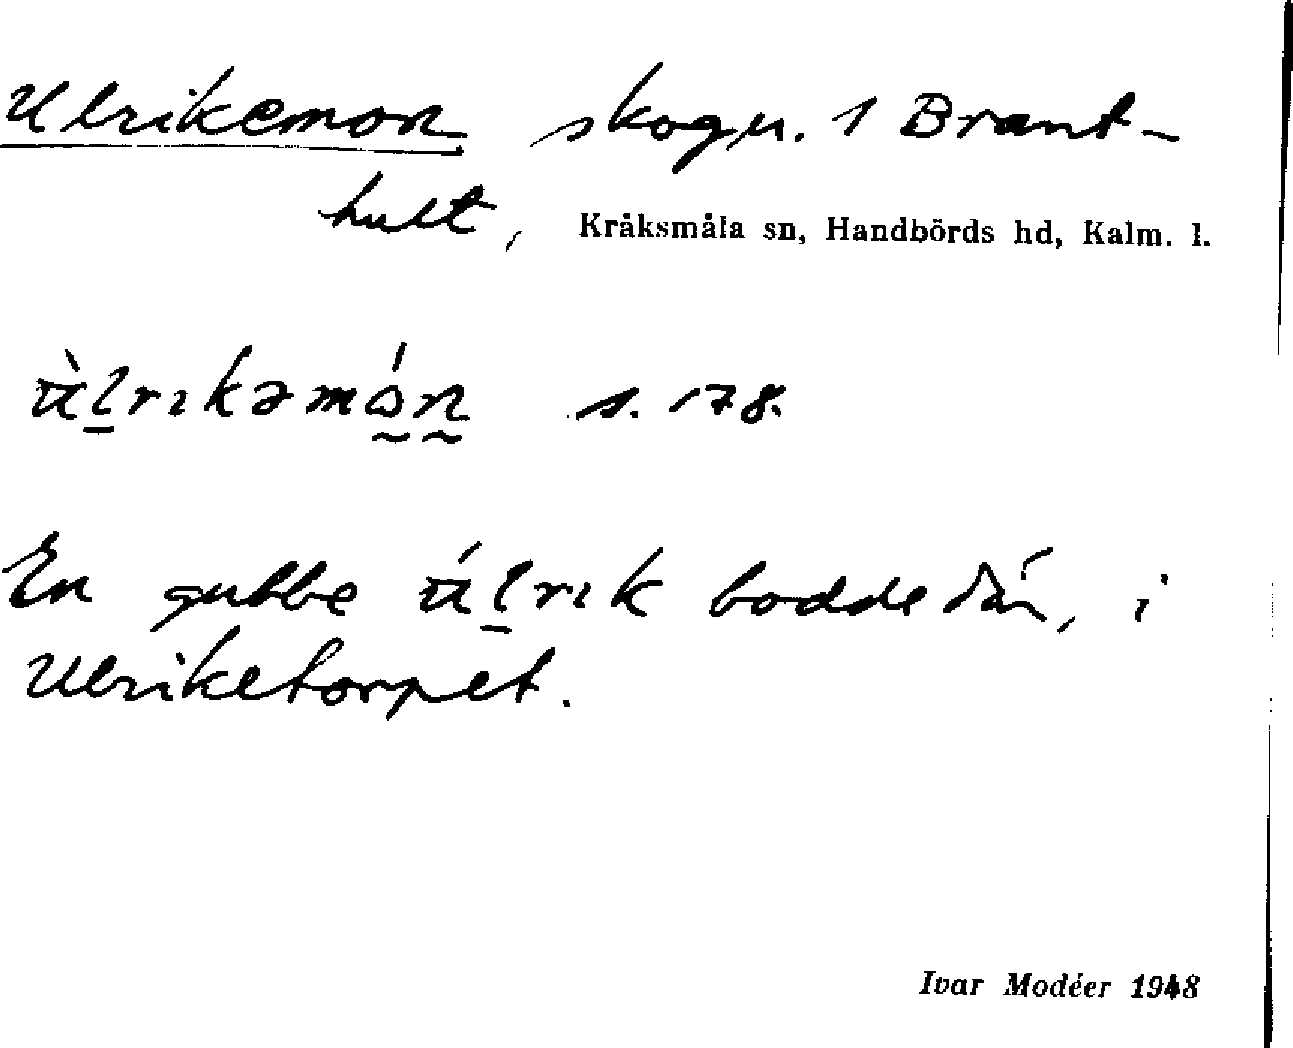 Ulrikemon skogn. i Brant-
hult, Kråksmåla sn, Handbörds hd, Kalm. l.
ùlrıkəmón s. 178.
En gubbe úlrık bodde där, i
Ulriketorpet.
Ivar Modéer 1948